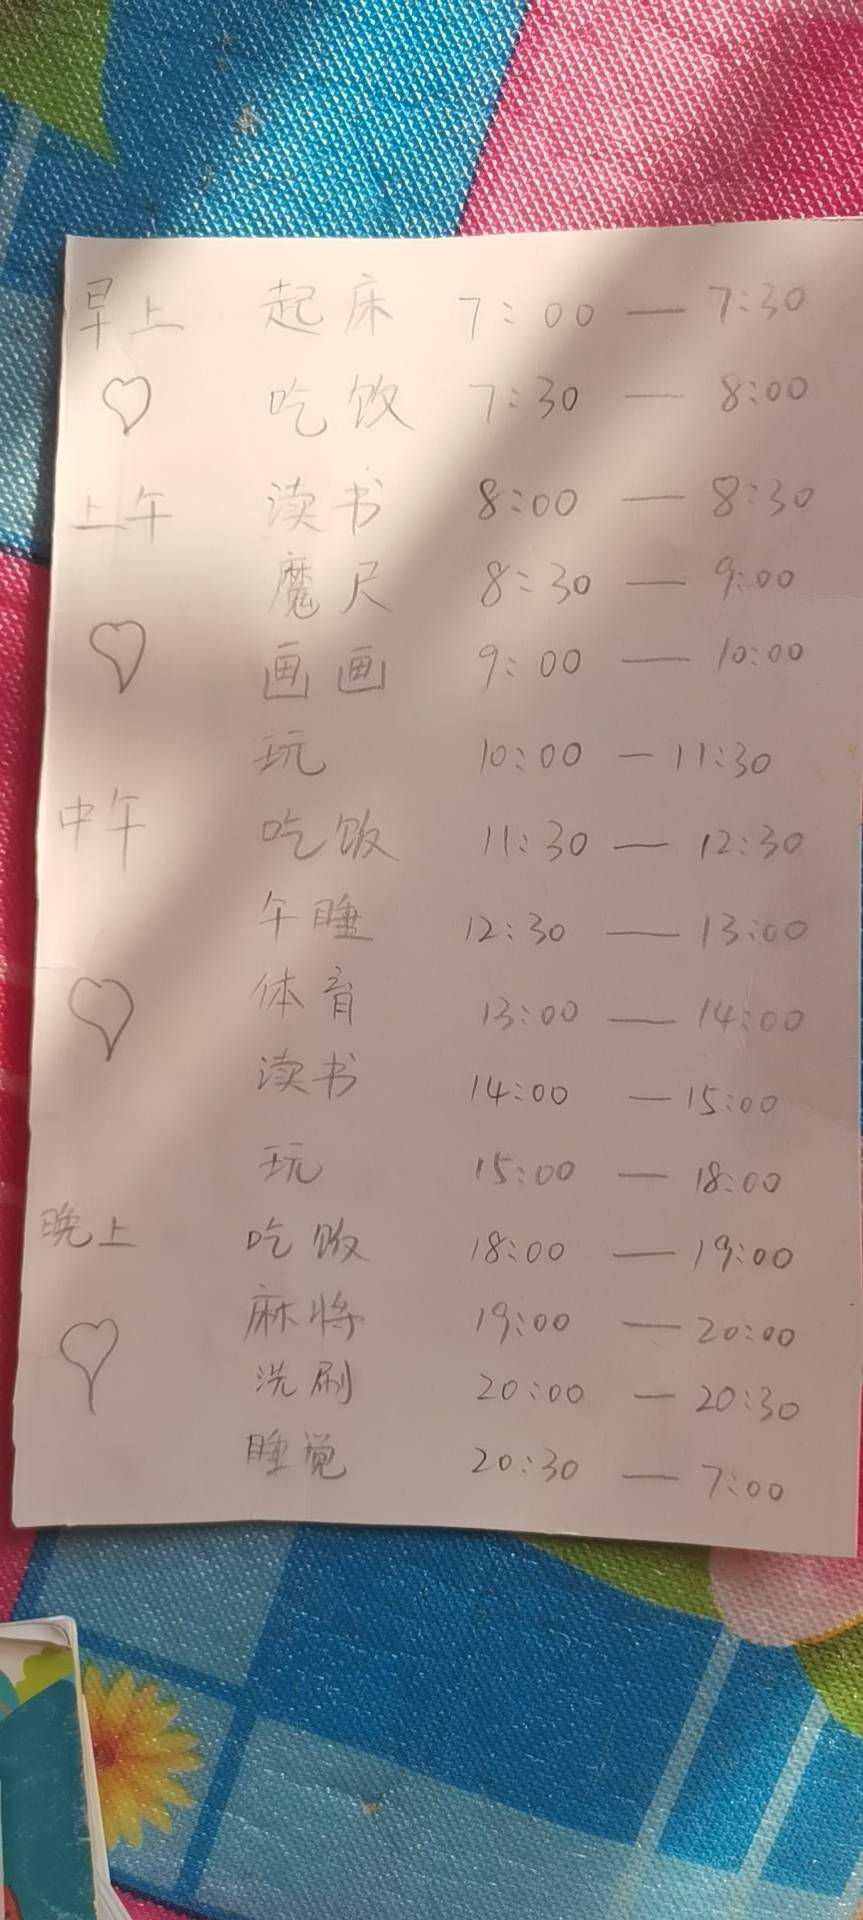 早上 起床 7:00 — 7:30
吃饭 7:30 — 8:00
上午 读书 8:00 — 8:30
魔尺 8:30 — 9:00
画画 9:00 — 10:00
玩 10:00 — 11:30
中午 吃饭 11:30 — 12:30
午睡 12:30 — 13:00
体育 13:00 — 14:00
读书 14:00 — 15:00
玩 15:00 — 18:00
晚上 吃饭 18:00 — 19:00
麻将 19:00 — 20:00
洗刷 20:00 — 20:30
睡觉 20:30 — 7:00